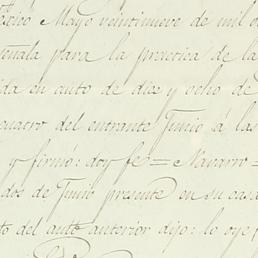 Mayo veintinueve de mil o
señala para la practica de la
da en auto de diez y ocho de
cuatro del entrante Junio á las
y firmó: doy fe = Navarro =
dos de Junio presente en su casa
to del auto anterior dijo: lo oye